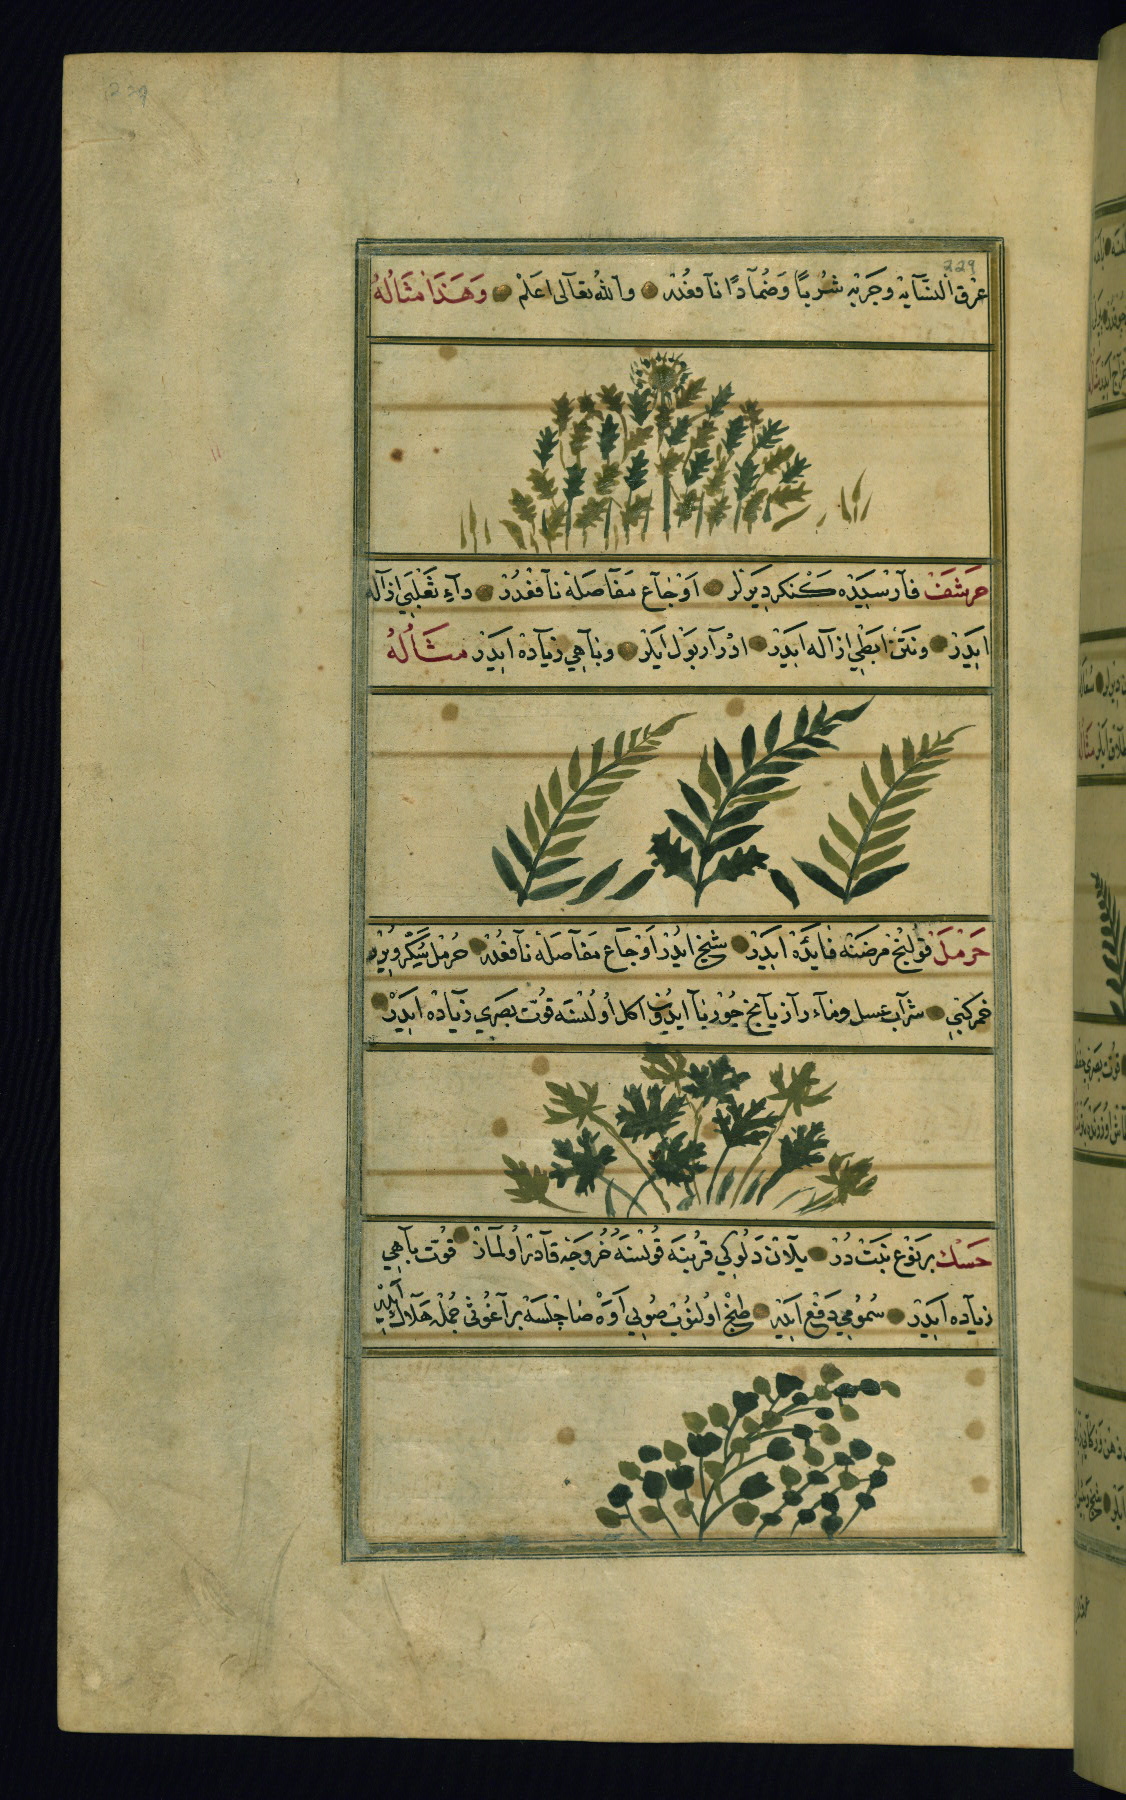 229
229
عرق النسایه وجربه شربا وضمادا نافعدر والله تعالی اعلم وهذا مثاله
حرشف فارسیده کنکر دیرلر اوجاع مفاصله نافعدر داء ثعلبی ازاله
ایدر ونتن ابطی ازاله ایدر ادرار بول ایلر وباهی زیاده ایدر مثاله
حرمل قولنج مرضنه فایده ایدر شیخ ایدر اوجاع مفاصله نافعدر حرمل
خمر کبی شراب عسل وماء رازیانج ایدوب اکل اولنسه قوت بصری زیاده ایدر
حسك بر نوع نبت در یلان دلوکی قربنه قولنسه خروجه قادر اولماز قوت باهی
زیاده ایدر سمومی دفع ایدر طبخ اولنوب صویی اوه صاچلسه براغوثی جمله هلاك ایلر